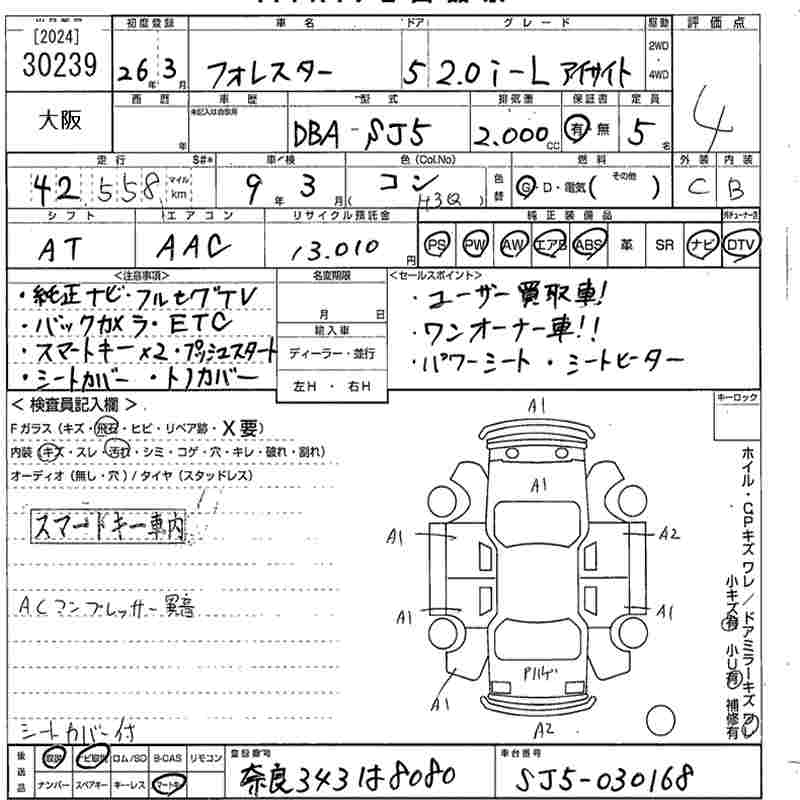 [2024]
30239
大阪
初度登録
26年3月
車名
フォレスター
ドア
5
グレード
2.0i-L アイサイト
駆動
2WD
4WD
評価点
4
西暦
年
車歴
未記入は自家用
型式
DBA-SJ5
排気量
2.000 CC
保証書
有・無
定員
5名
走行
S#*
42,558 マイル km
車検
9年3月
色(Col.No)
コン
H3Q
色替
燃料
G・D・電気( その他 )
外装
C
内装
B
シフト
AT
エアコン
AAC
リサイクル預託金
13.010円
純正装備品
PS PW AW エアB ABS 革 SR ナビ DTV
<注意事項>
・純正ナビ・フルセグTV
・バックカメラ・ETC
・スマートキー×2・プッシュスタート
・シートカバー・トノカバー
名変期限
月 日
輸入車
ディーラー・並行
左H・右H
<セールスポイント>
・ユーザー買取車!
・ワンオーナー車!!
・パワーシート・シートヒーター
キーロック
<検査員記入欄>
Fガラス(キズ・飛石・ヒビ・リペア跡・X要)
内装(キズ・スレ・汚れ・シミ・コゲ・穴・キレ・破れ・割れ)
オーディオ(無し・穴)/タイヤ(スタッドレス)
スマートキー車内
ACコンプレッサー異音
シートカバー付
A1
A1
A1
A2
A1
A1
A1
Pハゲ
A2
ホイル・CPキズ ワレ/ドアミラーキズ ワレ
小キズ有 小U有 補修有
後送品
取説 ナビ取説 ロム/SD B-CAS リモコン
ナンバー スペアキー キーレス スマートキー
登録番号
奈良343は8080
車台番号
SJ5-030168